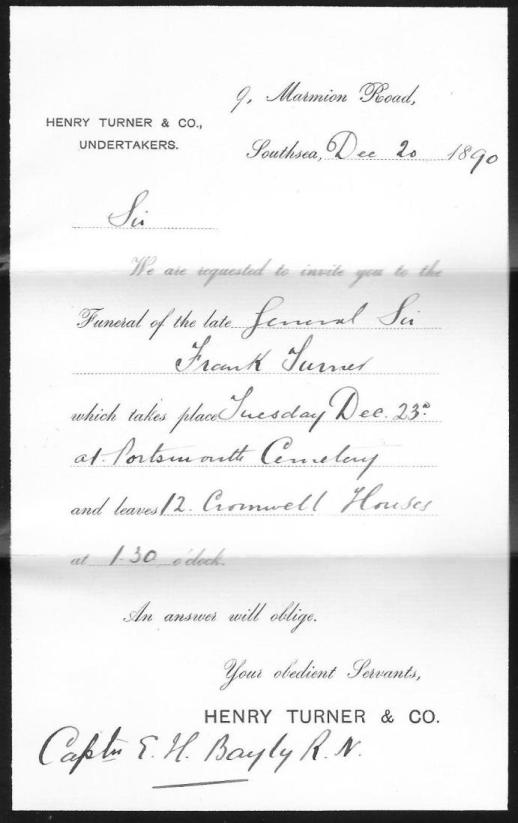 9, Marmion Road,
HENRY TURNER & CO.,
UNDERTAKERS.
Southsea, Dec 20 1890
Sir
We are requested to invite you to the
Funeral of the late General Sir
Frank Turner
which takes place Tuesday Dec. 23rd
at Portsmouth Cemetery
and leaves 12. Cromwell Houses
at 1-30 o'clock.
An answer will oblige.
Your obedient Servants,
HENRY TURNER & CO.
Captn E. H. Bayly R. N.